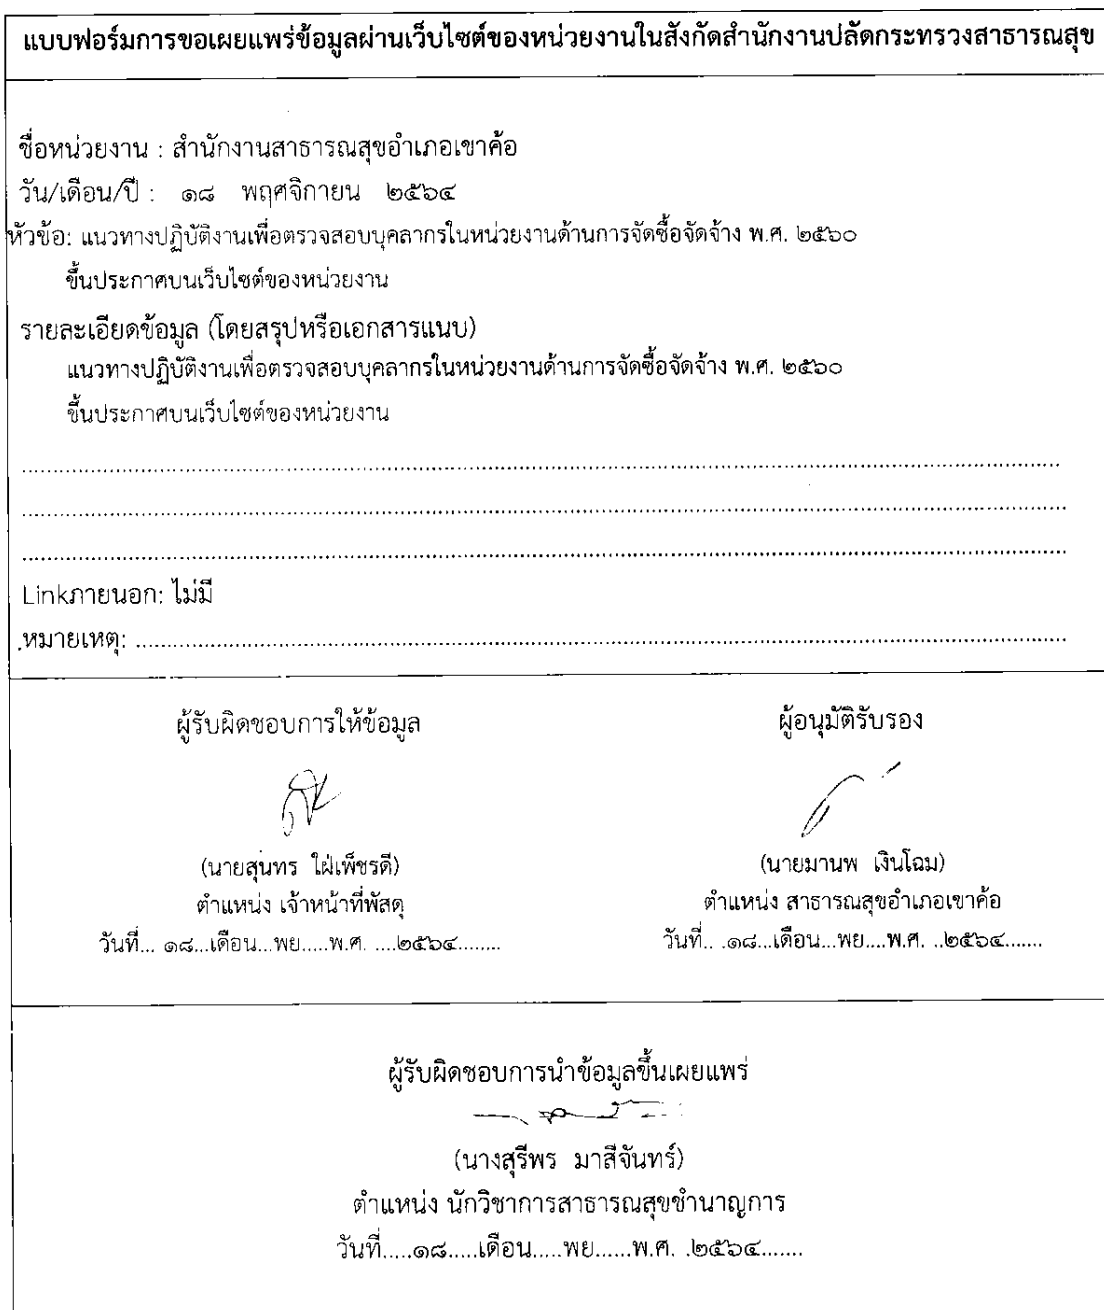 แบบฟอร์มการขอเผยแพร่ข้อมูลผ่านเว็บไซต์ของหน่วยงานในสังกัดสำนักงานปลัดกระทรวงสาธารณสุข
ชื่อหน่วยงาน : สำนักงานสาธารณสุขอำเภอเขาค้อ
วัน/เดือน/ปี : ๑๘ พฤศจิกายน ๒๕๖๔
หัวข้อ: แนวทางปฏิบัติงานเพื่อตรวจสอบบุคลากรในหน่วยงานด้านการจัดซื้อจัดจ้าง พ.ศ. ๒๕๖๐
ขึ้นประกาศบนเว็บไซต์ของหน่วยงาน
รายละเอียดข้อมูล (โดยสรุปหรือเอกสารแนบ)
แนวทางปฏิบัติงานเพื่อตรวจสอบบุคลากรในหน่วยงานด้านการจัดซื้อจัดจ้าง พ.ศ. ๒๕๖๐
ขึ้นประกาศบนเว็บไซต์ของหน่วยงาน
Linkภายนอก: ไม่มี
หมายเหตุ: ..........
ผู้รับผิดชอบการให้ข้อมูล
(นายสุนทร ใฝ่เพ็ชรดี)
ตำแหน่ง เจ้าหน้าที่พัสดุ
วันที่... ๑๘...เดือน...พย.....พ.ศ. ....๒๕๖๔........
ผู้อนุมัติรับรอง
(นายมานพ เงินโฉม)
ตำแหน่ง สาธารณสุขอำเภอเขาค้อ
วันที่.. .๑๘...เดือน...พย....พ.ศ. ..๒๕๖๔.......
ผู้รับผิดชอบการนำข้อมูลขึ้นเผยแพร่
(นางสุรีพร มาสีจันทร์)
ตำแหน่ง นักวิชาการสาธารณสุขชำนาญการ
วันที่.....๑๘.....เดือน.....พย......พ.ศ. .๒๕๖๔.......